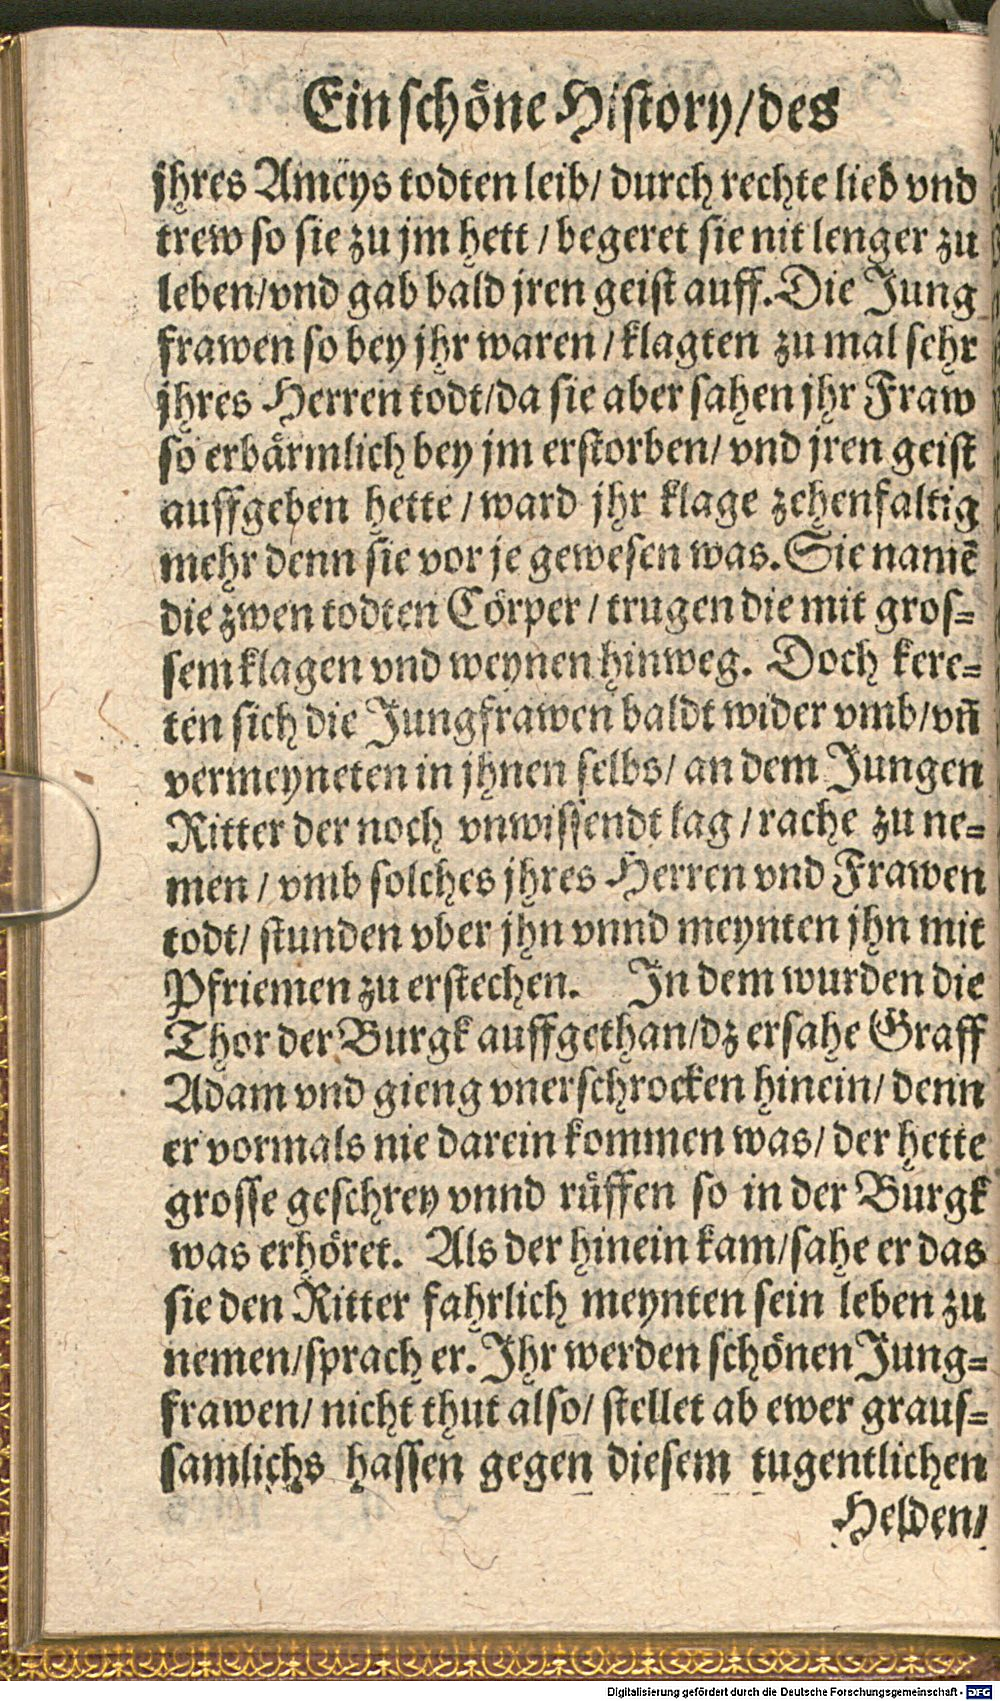 Ein schöne History/des
jhres Ameys todten leib/ durch rechte lieb vnd
trew so sie zu jm hett / begeret sie nit lenger zu
leben/vnd gab bald jren geist auff. Die Jung
frawen so bey jhr waren / klagten zu mal sehr
jhres Herren todt/da sie aber sahen jhr Fraw
so erbärmlich bey jm erstorben/ vnd jren geist
auffgeben hette / ward jhr klage zehenfaltig
mehr denn sie vor je gewesen was. Sie namē
die zwen todten Cörper / trugen die mit gros-
sem klagen vnd weynen hinweg. Doch kere-
ten sich die Jungfrawen baldt wider vmb/vñ
vermeyneten in jhnen selbs/ an dem Jungen
Ritter der noch vnwissendt lag / rache zu ne-
men / vmb solches jhres Herren vnd Frawen
todt/ stunden vber jhn vnnd meynten jhn mit
Pfriemen zu erstechen. In dem wurden die
Thor der Burgk auffgethan/dz ersahe Graff
Adam vnd gieng vnerschrocken hinein/ denn
er vormals nie darein kommen was/ der hette
grosse geschrey vnnd rüffen so in der Burgk
was erhöret. Als der hinein kam/sahe er das
sie den Ritter fahrlich meynten sein leben zu
nemen/sprach er. Ihr werden schönen Jung-
frawen/ nicht thut also/ stellet ab ewer graus-
samlichs hassen gegen diesem tugentlichen
Helden/
Digitalisierung gefördert durch die Deutsche Forschungsgemeinschaft - DFG